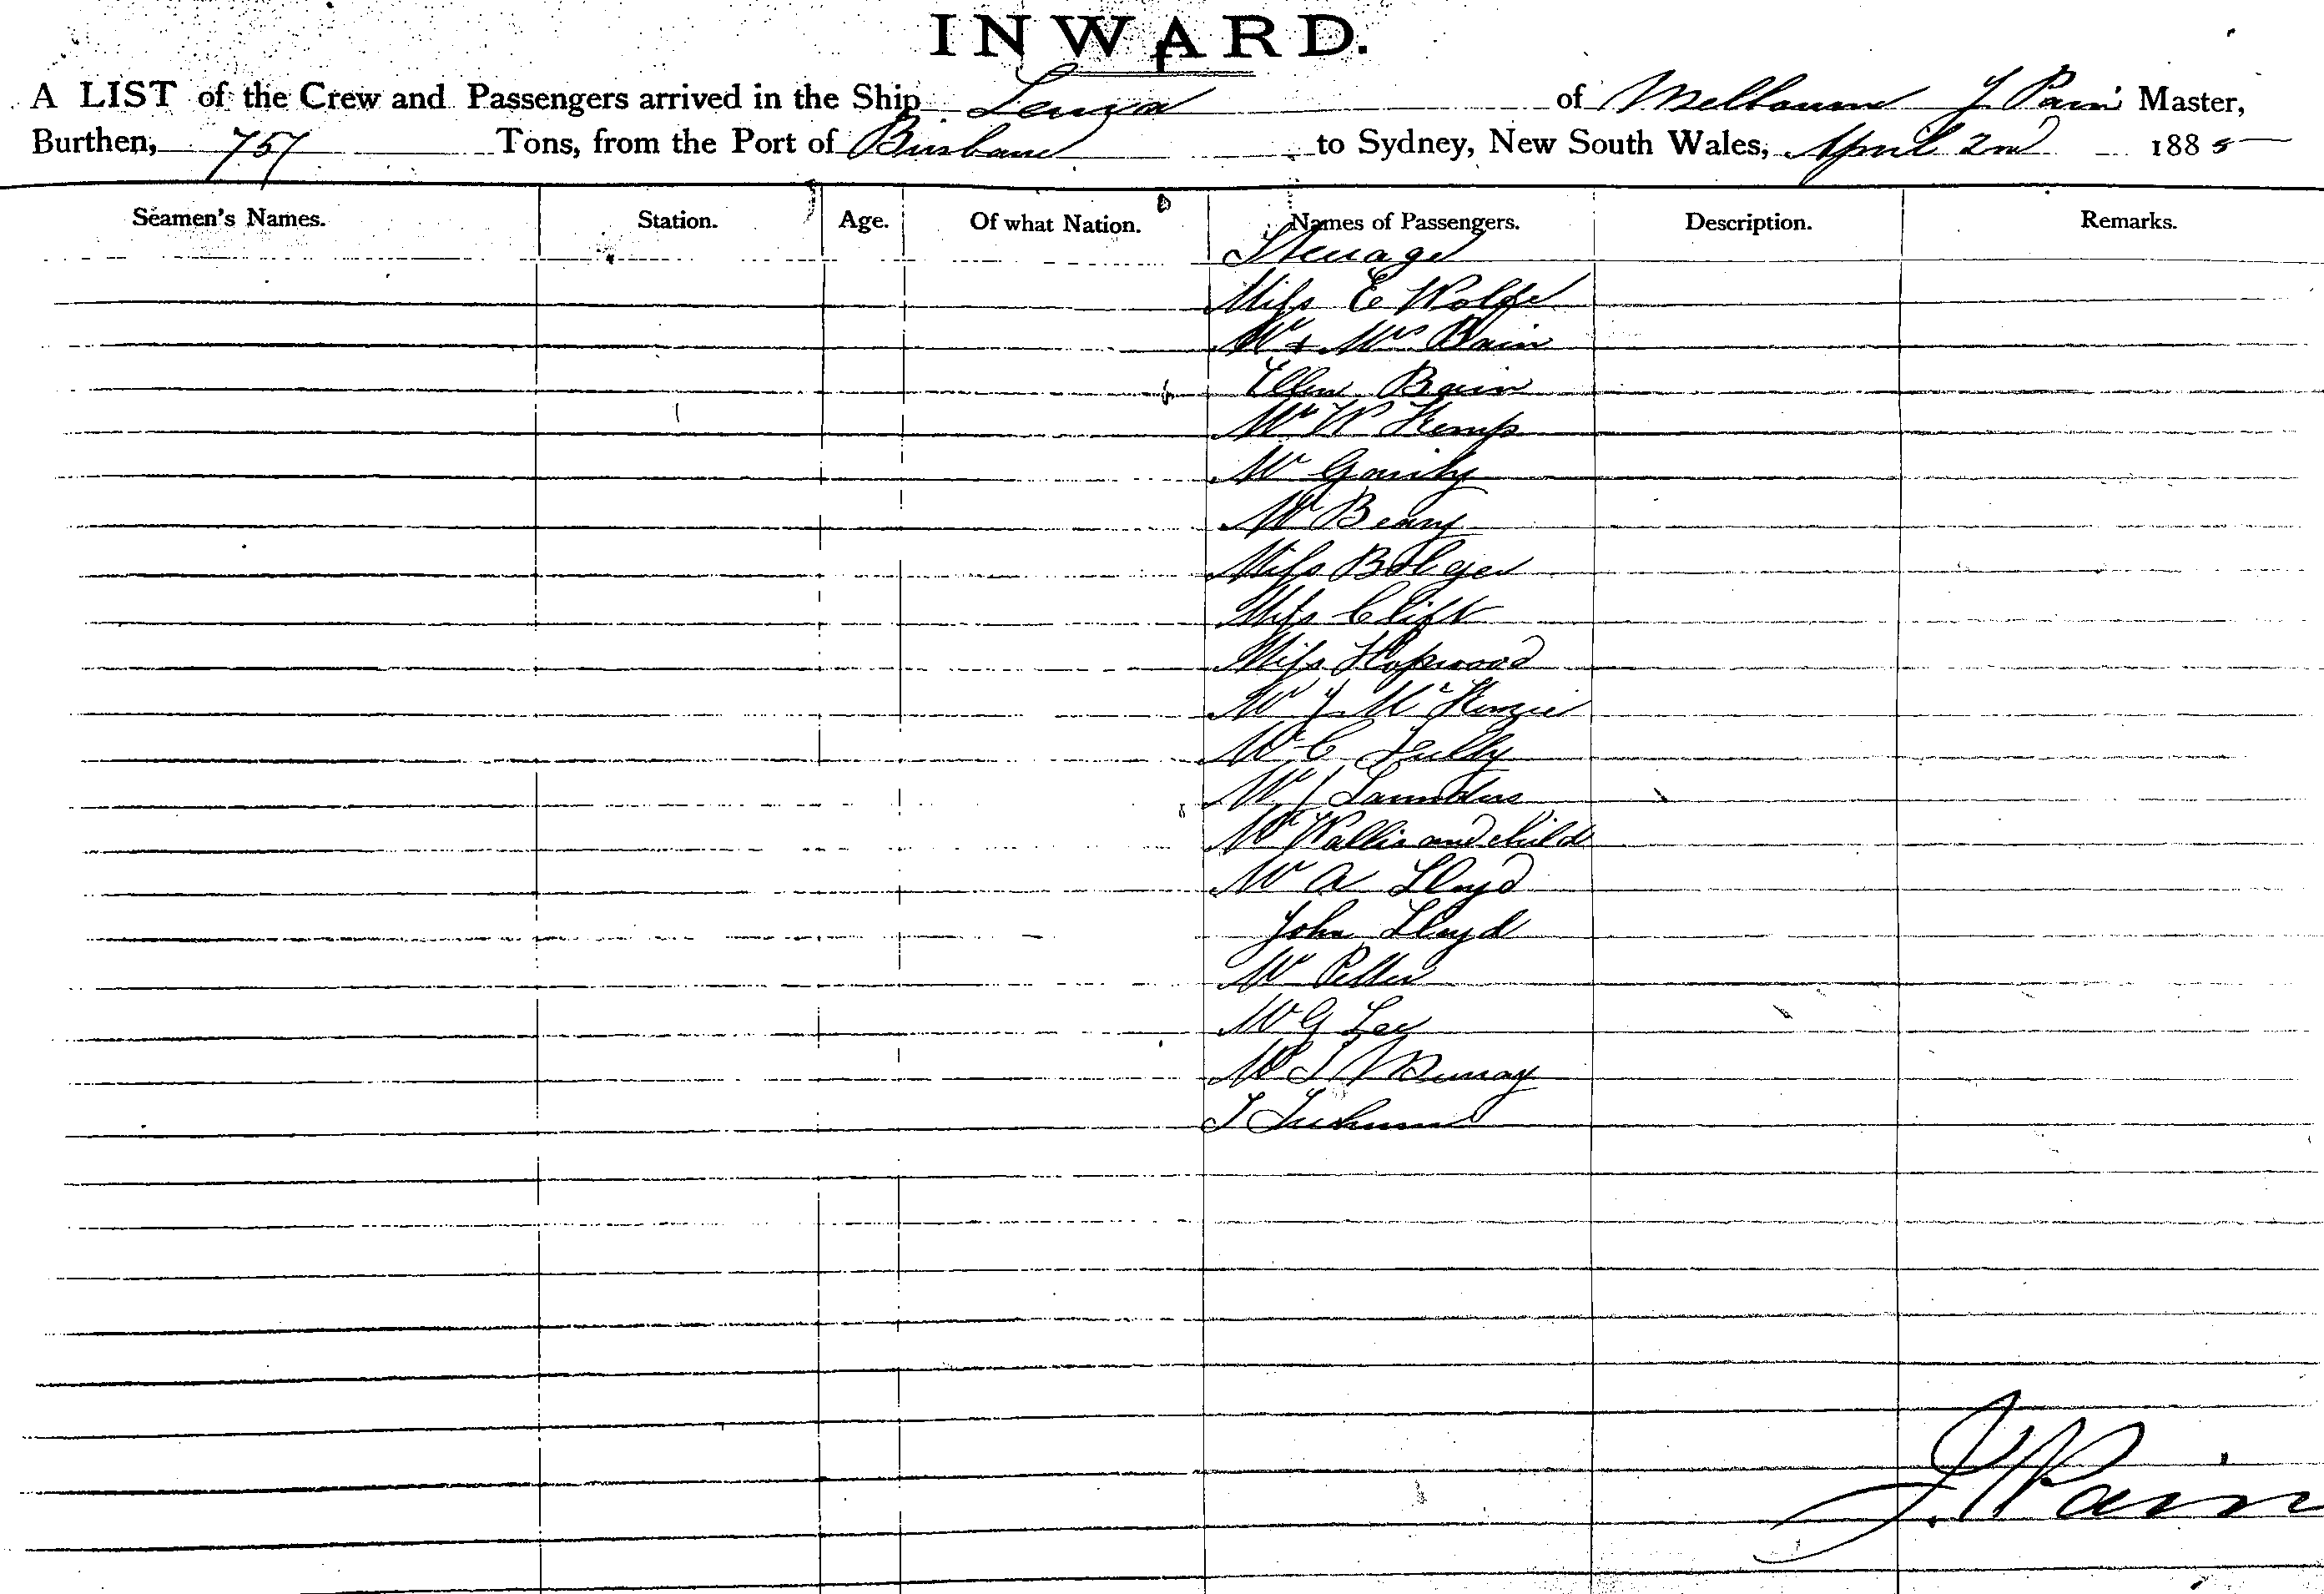 INWARD.
A LIST of the Crew and Passengers arrived in the Ship of Melbourne J Pain Master,
Burthen, 757 Tons, from the Port of Brisbane to Sydney, New South Wales, April 2nd 1885
Seamen's Names. Station. Age. Of what Nation. Names of Passengers. Description. Remarks.
Steerage
Miss E Wolfe
Mr & Mrs Bain
Ellen Bain
Mr W Kemp
Mr
Mr Beany
Miss Bolger
Miss Clift
Miss Hopwood
Mr J McKenzie
Mr C Tully
Mr J Saunders
Mr Wallis and child
Mr A Lloyd
John Lloyd
Mr
Mr G Lee
Mr S Murray
J. Pain